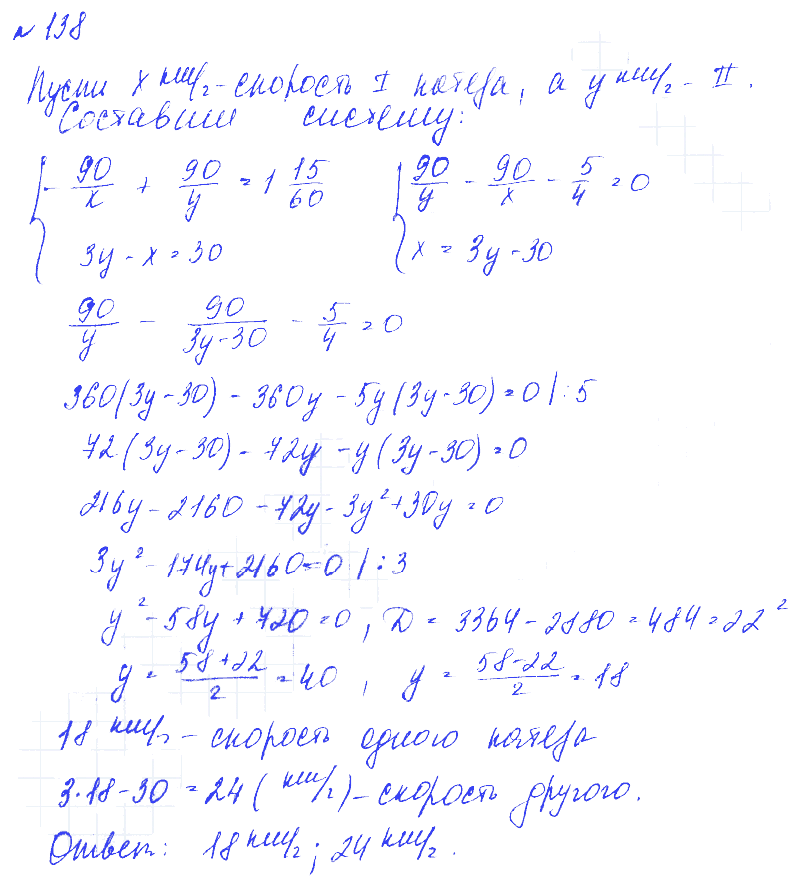 № 138
Пусть x км/г - скорость I катера, а y км/г - II.
Составим систему:
{ - 90/x + 90/y = 1 15/60 { 90/y - 90/x - 5/4 = 0
3y - x = 30 x = 3y - 30
90/y - 90/(3y-30) - 5/4 = 0
360(3y-30) - 360y - 5y(3y-30) = 0 | : 5
72(3y-30) - 72y - y(3y-30) = 0
216y - 2160 - 72y - 3y² + 30y = 0
3y² - 174y + 2160 = 0 | : 3
y² - 58y + 720 = 0, D = 3364 - 2880 = 484 = 22²
y = (58+22)/2 = 40, y = (58-22)/2 = 18
18 км/г - скорость одного катера
3·18-30 = 24 (км/г) - скорость другого.
Ответ: 18 км/г; 24 км/г.